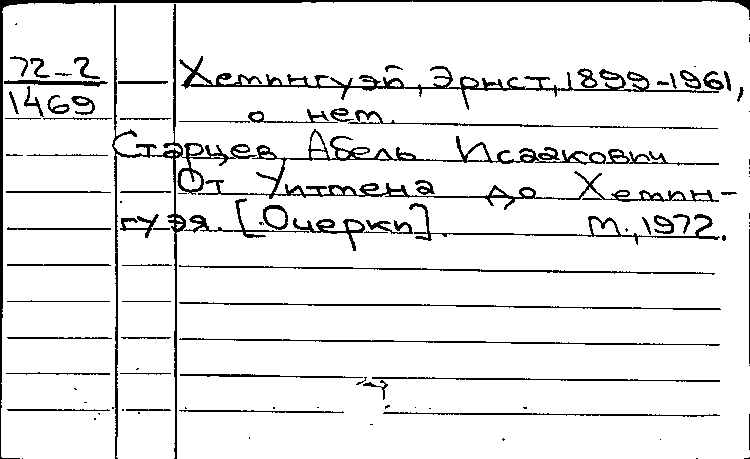 72-2
1469
Хемингуэй, Эрнст, 1899-1961,
о нем.
Старцев, Абель Исаакович
От Уитмена до Хемин-
гуэя. [Очерки]. М., 1972.